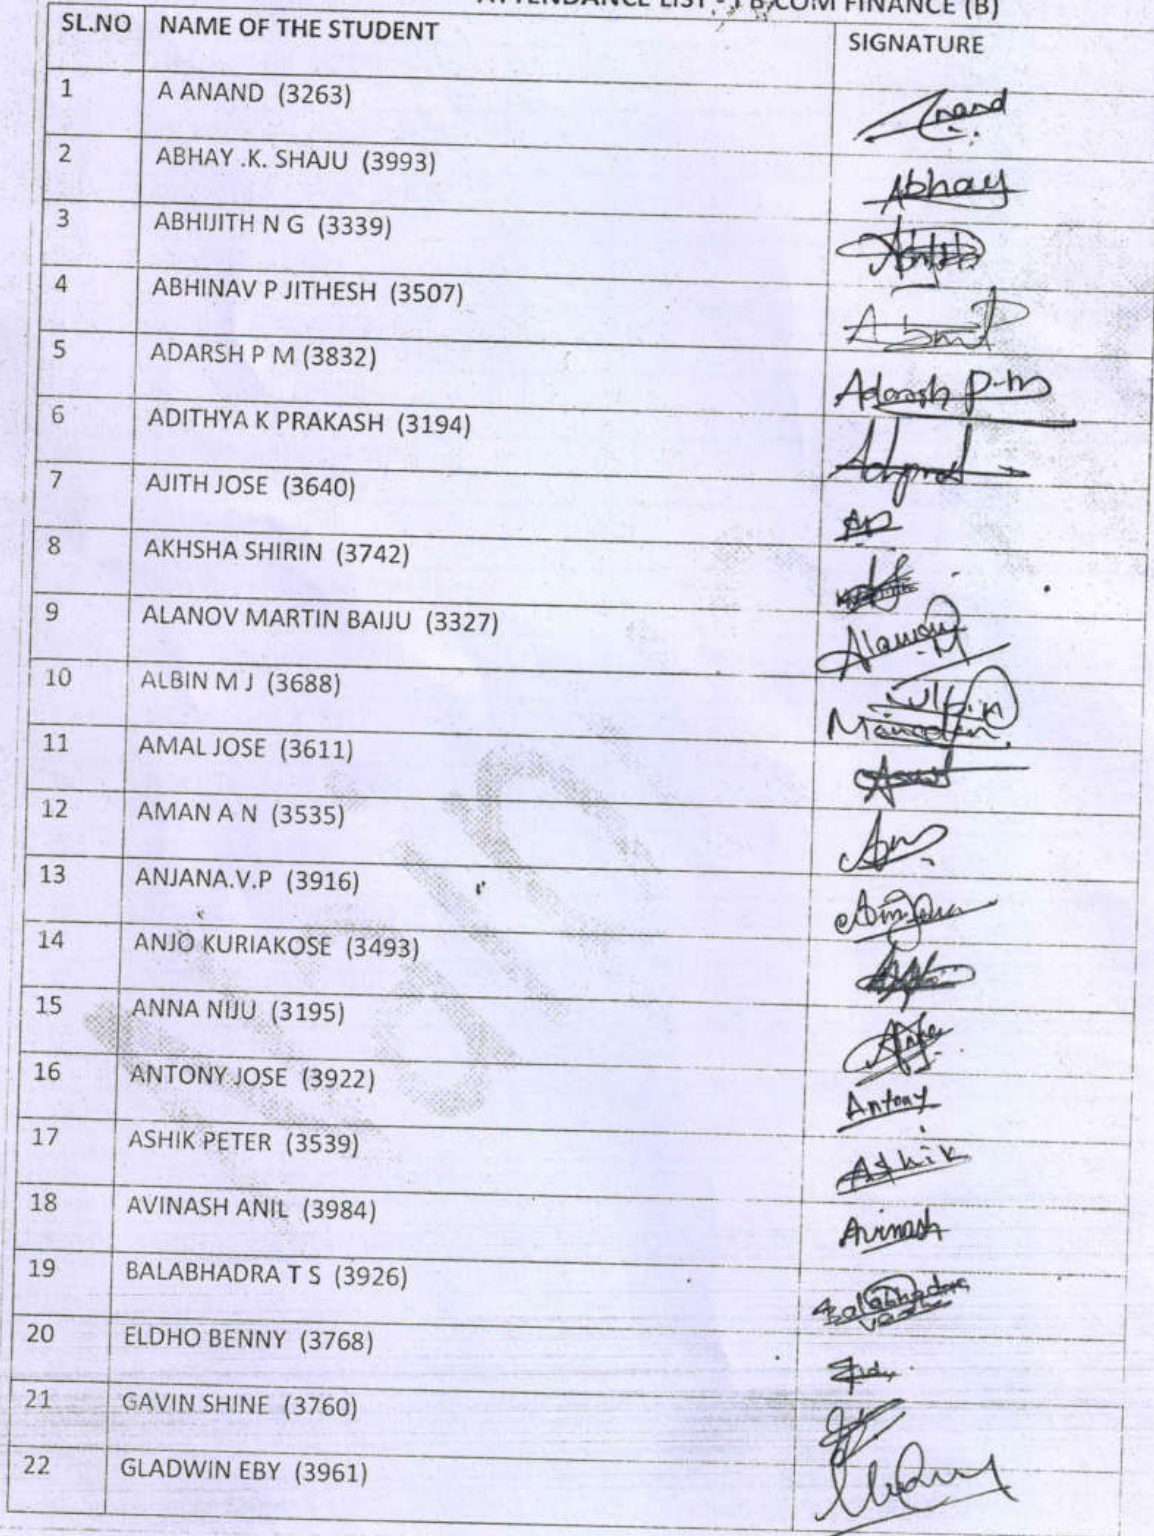 ATTENDANCE LIST - I B.COM FINANCE (B)
SL.NO NAME OF THE STUDENT SIGNATURE
1 A ANAND (3263) Anand
2 ABHAY .K. SHAJU (3993) Abhay
3 ABHIJITH N G (3339)
4 ABHINAV P JITHESH (3507)
5 ADARSH P M (3832) Adarsh P.M
6 ADITHYA K PRAKASH (3194)
7 AJITH JOSE (3640)
8 AKHSHA SHIRIN (3742)
9 ALANOV MARTIN BAIJU (3327)
10 ALBIN M J (3688)
11 AMAL JOSE (3611)
12 AMAN A N (3535)
13 ANJANA.V.P (3916)
14 ANJO KURIAKOSE (3493)
15 ANNA NIJU (3195)
16 ANTONY JOSE (3922) Antony
17 ASHIK PETER (3539) Ashik
18 AVINASH ANIL (3984) Avinash
19 BALABHADRA T S (3926) Balabhadra
20 ELDHO BENNY (3768)
21 GAVIN SHINE (3760)
22 GLADWIN EBY (3961)